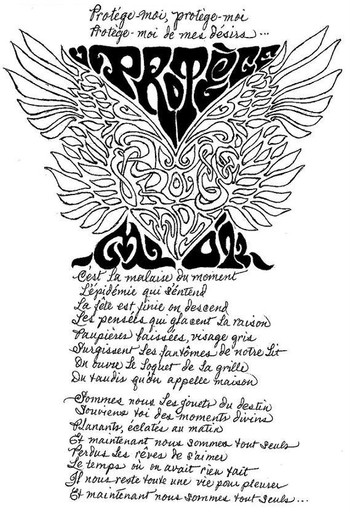 Protège-moi, protège-moi
Protège-moi de mes désirs...
PROTÈGE
MOI
C'est la malaise du moment
L'épidémie qui s'étend
La fête est finie on descend
Les pensées qui glacent la raison
Paupières baissées, visage gris
Surgissent les fantômes de notre lit
On ouvre le loquet de la grille
Du taudis qu'on appelle maison
Sommes nous les jouets du destin
Souviens toi des moments divins
Planants, éclatés au matin
Et maintenant nous sommes tout seuls
Perdus les rêves de s'aimer
Le temps où on avait rien fait
Il nous reste toute une vie pour pleurer
Et maintenant nous sommes tout seuls...